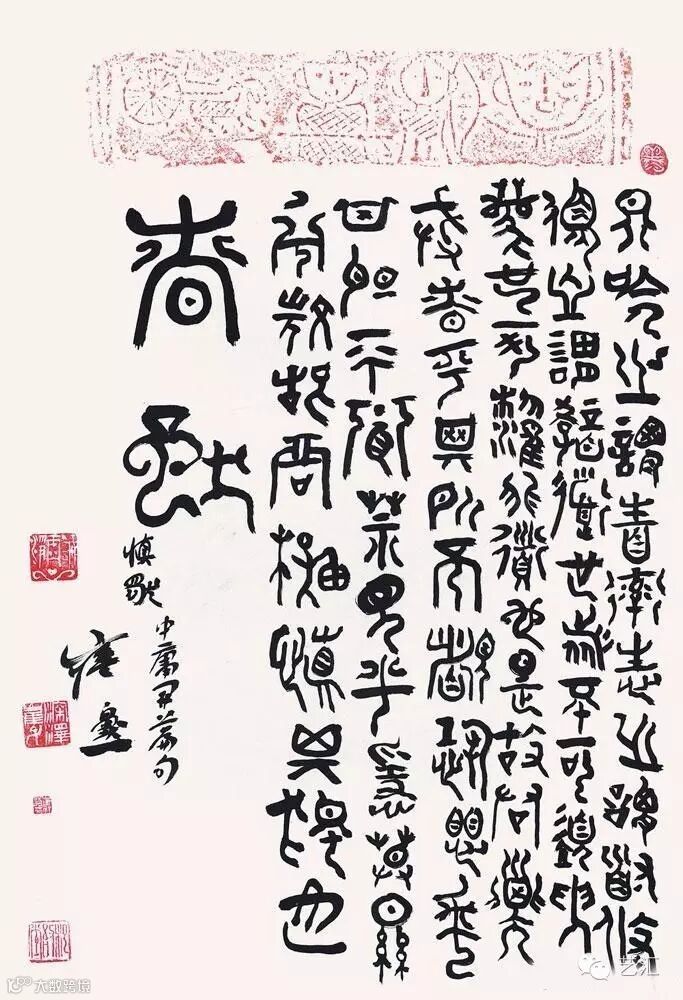 天命之謂性率性之謂道修
道之謂教道也者不可須臾
離也可離非道也是故君子
戒慎乎其所不睹恐懼乎
其所不聞莫見乎隱莫顯
乎微故君子慎其獨也
昚獨
慎獨 中庸開篇句
大数跨境
艺汇